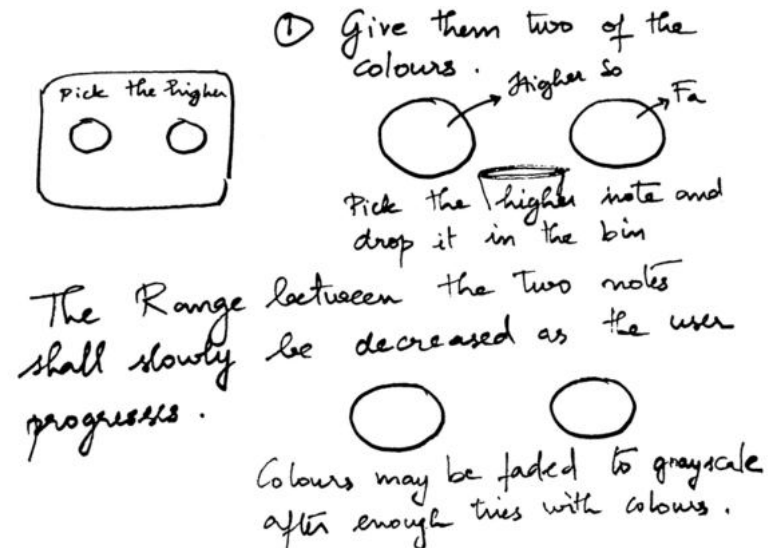 ① Give them two of the
colours.
Pick the higher
Higher So
Fa
Pick the higher note and
drop it in the bin
The Range between the two notes
shall slowly be decreased as the user
progresses.
Colours may be faded to grayscale
after enough tries with colours.